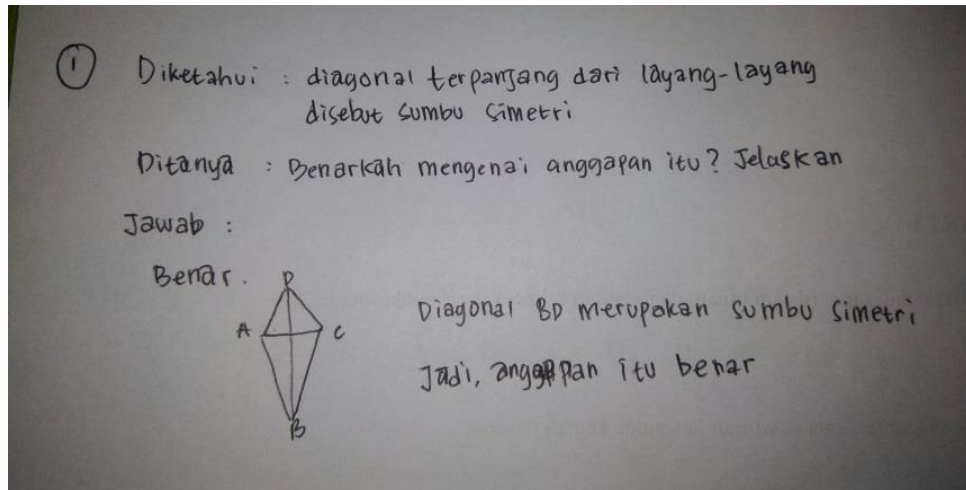 1 Diketahui : diagonal terpanjang dari layang-layang
disebut sumbu simetri
Ditanya : Benarkah mengenai anggapan itu? Jelaskan
Jawab :
Benar.
D
A C
B
Diagonal BD merupakan sumbu simetri
Jadi, anggapan itu benar